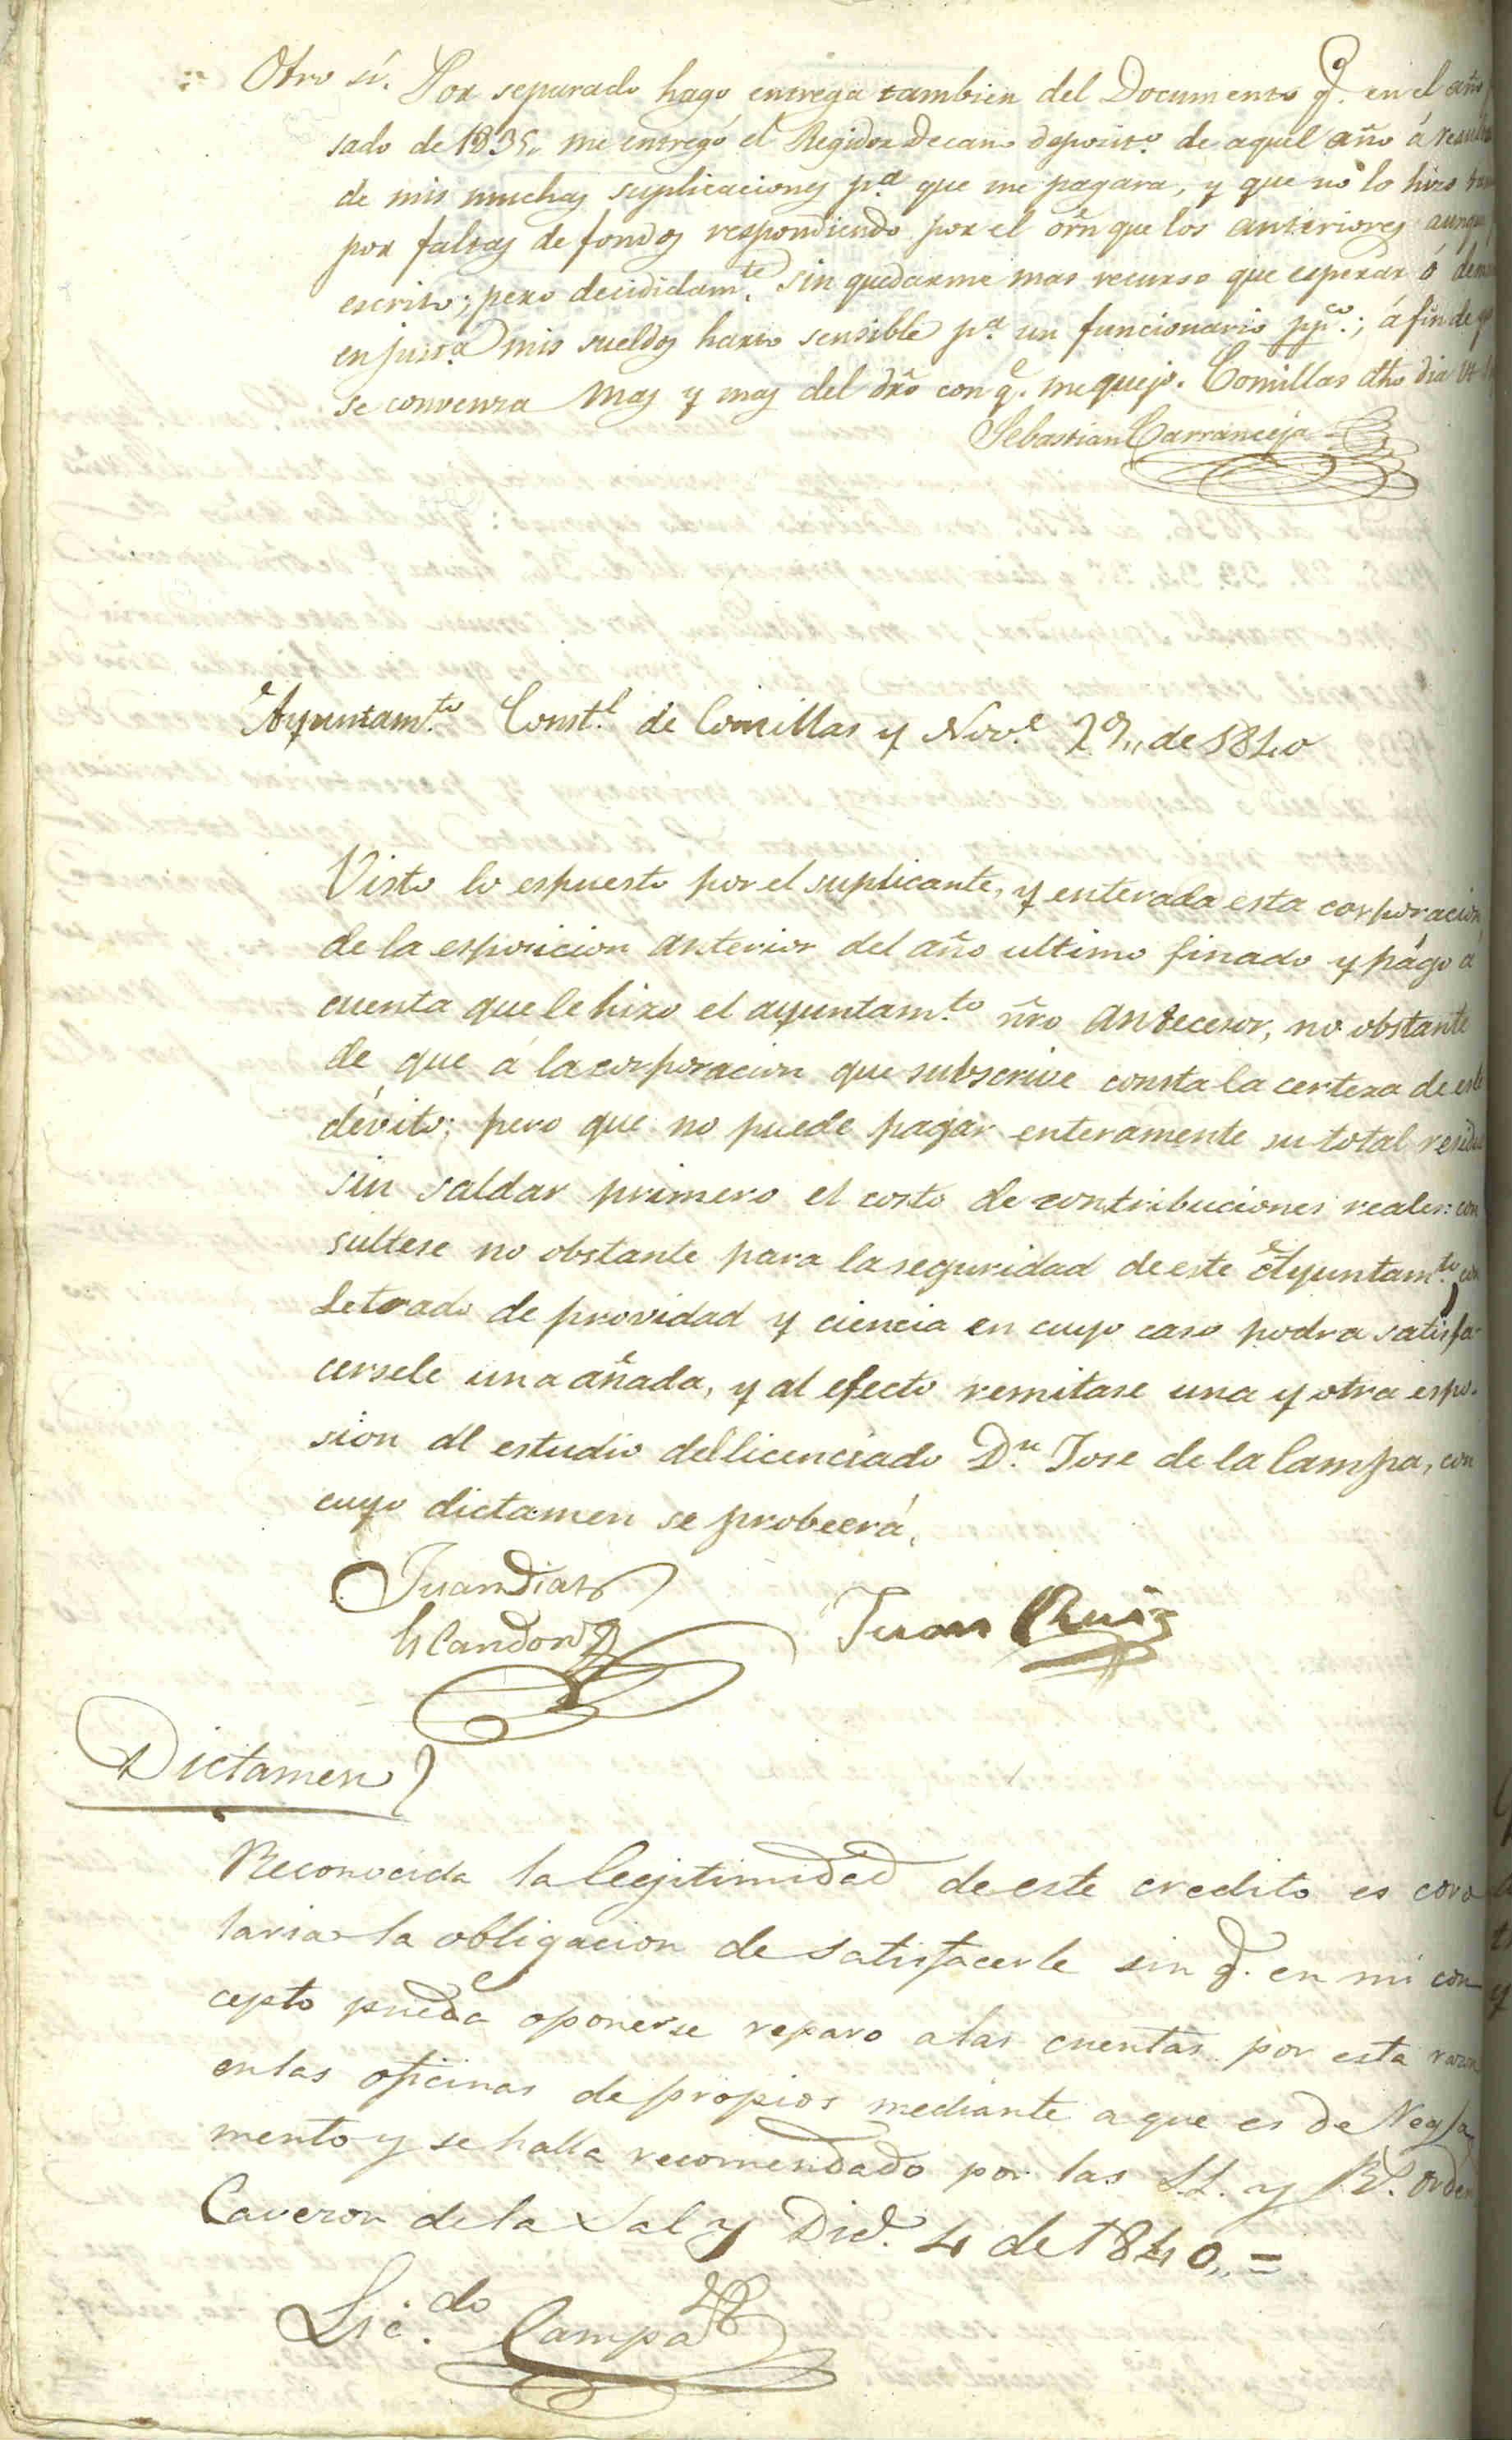 Otro sí. Por separado hago entrega tambien del Documento q. en el año
sado de 1835,, me entregó el Regidor Decano deposit.º de aquel año á
de mis muchas suplicaciones p.ª que me pagara, y que no lo hizo
por faltas de fondos respondiendo por el orñ que los anteriores
escrito; pero decididam.te sin quedarme mas recurso que esperar ó
en just.ª mis sueldos harto sensible p.ª un funcionario pp.co; á fin de
se convenza mas y mas del dro con q. me quejo. Comillas dho dia
Sebastian Carranceja
Ayuntam.to Const.l de Comillas y Nov.e 29,, de 1840
Visto lo espuesto por el suplicante, y enterada esta corporacion
de la esposicion anterior del año ultimo finado y págo á
cuenta que le hizo el ayuntam.to ñro antecesor, no obstante
de que á la corporacion que subscrive consta la certeza de este
dévito; pero que no puede pagar enteramente su total
sin saldar primero el costo de contribuciones reales: con
sultese no obstante para la seguridad de este Ayuntam.to, con
Letrado de providad y ciencia en cuyo caso podra satisfa-
cersele una añada, y al efecto remitase una y otra espo-
sion al estudio del licenciado D.n Jose de la Campa, con
cuyo dictamen se probeerá.
Juan Diaz
Juan Ruiz
Escandon
Dictamen
Reconocida la legitimidad de este credito es coro
laria la obligacion de satisfacerle sin q. en mi con
cepto pueda oponerse reparo a las cuentas por esta razon
en las oficinas de propios mediante a que es de Regla
mento y se halla recomendado por las LL. y R.s orden
Caveron de la Sal y Dic.e 4 de 1840,, =
Lic.do Campa